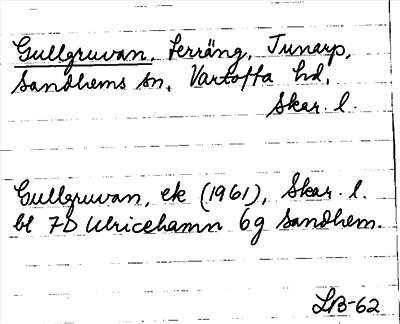 Gullgruvan, terräng, Tunarp,
Sandhems sn, Vartofta hd,
Skar. l.
Gullgruvan, ek (1961), Skar. l.
bl 7D Ulricehamn 6g Sandhem.
LB-62